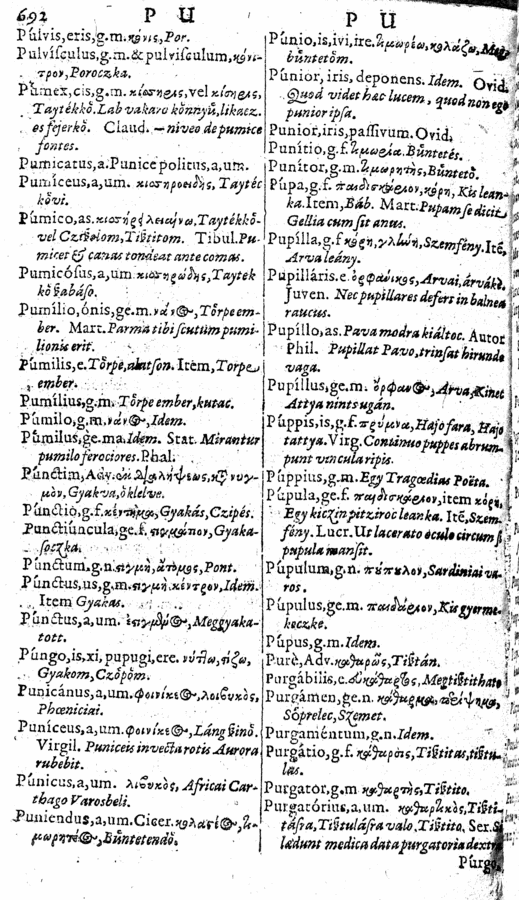 692 P U
Púlvis, eris, g.m. κόνις, Por.
Pulvísculus, g.m. & pulvisculum, κόνι-
τρον, Poroczka.
Púmex, cis, g.m. κίσσηρις, vel κίσηρις,
Taytékkő. Lab vakaro kőnnyű, likacz.
es fejerkő. Claud. — niveo de pumice
fontes.
Pumicatus, a. Punice politus, a, um.
Pumíceus, a, um. κισσηροειδὴς, Taytéc
kővi.
Púmico, as. Taytékkő-
vel Tißtitom. Tibul. Pu-
micet & canas tondeat ante comas.
Pumicósus, a, um κισσηρώδης, Taytek
Pumílio, ónis, ge.m. Tőrpe em-
ber. Mart. Parma tibi scutum pumi-
lionis erit.
Púmilis, e. Tőrpe, alatson. Item, Tőrpe
ember.
Pumílius, g.m. Tőrpe ember, kutac.
Púmilo, g.m. Idem.
Púmilus, ge.ma. Idem. Stat. Mirantur
pumilo ferociores. Phal.
Púnctim, Adv.
μὸν, Gyakva, őklelve.
Púnctio, g.f. κέντημα, Gyakás, Czipés.
Punctiúncula, ge.f. Gyaka-
soczka.
Púnctum, g.n. στιγμὴ, ἄτομος, Pont.
Púnctus, us, g.m. στιγμὴ, κέντρον, Idem.
Item Gyakas.
Púnctus, a, um. Meggyaka-
tott.
Púngo, is, xi, pupugi, ere. νύττω, στίζω,
Gyakom, Czőpőm.
Punicánus, a, um. φοινίκεος, λοιβυκὸς,
Phœniciai.
Puníceus, a, um. φοινίκεος, Láng ßinő.
Virgil. Puniceis invecta rotis Aurora
rubebit.
Púnicus, a, um. λιβυκὸς, Africai Car-
thago Varosbeli.
Puniendus, a, um. Cicer.
Bűntetendő.
P U
Púnio, is, ivi, ire. τιμωρέω, κολάζω, Meg
bűntetőm.
Púnior, iris, deponens. Idem. Ovid.
Quod videt hæc lucem, quod non ego
punior ipsa.
Punior, iris, passivum. Ovid,
Punítio, g.f. τιμωρία. Bűntetés.
Punítor, g.m. τιμωρητὴς, Bűntető.
Púpa, g.f. κόρη, Kis lean-
ka. Item, Báb. Mart. Pupam se dicit
Gellia cum sit anus.
Pupílla, g.f. κόρη, γλήνη, Szemfény. Itē,
Arva leány.
Pupilláris. e. ὀρφανικὸς, Arvai, árváké.
Juven. Nec pupillares defers in balnea
raucus.
Pupíllo, as. Pava modra kiáltoc. Autor
Phil. Pupillat Pavo, trinsat hirundo
vaga.
Pupíllus, ge.m. ὀρφανὸς, Arva, Kinec
Attya nints ugán.
Púppis, is, g.f. πρύμνα, Hajo fara, Hajo
tattya. Virg. Continuo puppes abrum-
punt vincula ripis.
Púppius, g.m. Egy Tragœdias Poëta.
Púpula, ge.f. item κόρη,
Egy kiczin pitziroc leanka. Itē, Szem-
fény. Lucr. Ut lacerato oculo circum si
pupula mansit.
Púpulum, g.n. πύπυλον, Sardiniai va-
ros.
Púpulus, ge.m. παιδάριον, Kis gyerme-
keczke.
Púpus, g.m. Idem.
Purè, Adv. καθαρῶς, Tißtán.
Purgábilis, e. Megtißtithato
Purgámen, ge.n. κάθαρμα,
Sőprelec, Szemet.
Purgaméntum, g.n. Idem.
Purgátio, g.f. κάθαρσις, Tißtitas, tißtu-
las.
Purgator, g.m καθαρτὴς, Tißtito.
Purgatórius, a, um. καθαρτικὸς, Tißti-
tásra, Tißtulásra valo, Tißtito. Ser. Si
lædunt medica data purgatoria dextra
Púrgo,